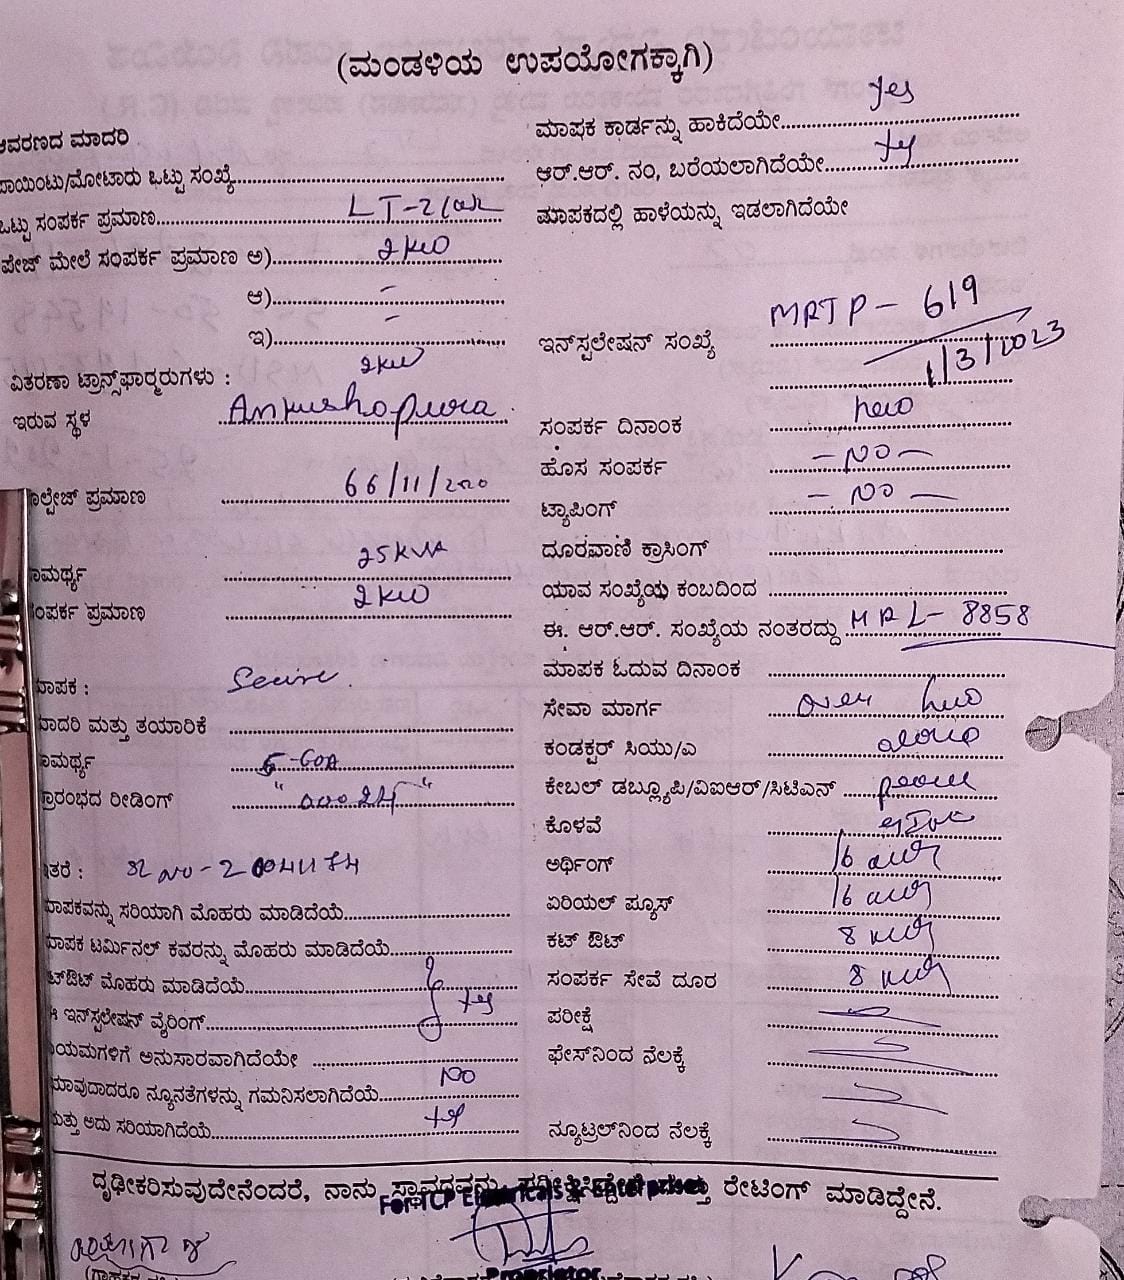 (ಮಂಡಳಿಯ ಉಪಯೋಗಕ್ಕಾಗಿ)
ಆವರಣದ ಮಾದರಿ
ಪಾಯಿಂಟು/ಮೋಟಾರು ಒಟ್ಟು ಸಂಖ್ಯೆ
ಒಟ್ಟು ಸಂಪರ್ಕ ಪ್ರಮಾಣ LT-2
ಪೇಜ್ ಮೇಲೆ ಸಂಪರ್ಕ ಪ್ರಮಾಣ ಅ) 2 KW
ಆ) -
ಇ) -
2KW
ವಿತರಣಾ ಟ್ರಾನ್ಸ್‌ಫಾರ್ಮರುಗಳು :
ಇರುವ ಸ್ಥಳ Ankushapura
ಲ್ಟೇಜ್ ಪ್ರಮಾಣ 66/11/200
ಾಮರ್ಥ್ಯ 25 KVA
ಸಂಪರ್ಕ ಪ್ರಮಾಣ 2 KW
ಮಾಪಕ : Secure
ಮಾದರಿ ಮತ್ತು ತಯಾರಿಕೆ
ಾಮರ್ಥ್ಯ 5-60A
ಪ್ರಾರಂಭದ ರೀಡಿಂಗ್
ಇತರೆ :
ಮಾಪಕವನ್ನು ಸರಿಯಾಗಿ ಮೊಹರು ಮಾಡಿದೆಯೆ
ಮಾಪಕ ಟರ್ಮಿನಲ್ ಕವರನ್ನು ಮೊಹರು ಮಾಡಿದೆಯೆ
ಟ್‌ಔಟ್ ಮೊಹರು ಮಾಡಿದೆಯೆ
ಇನ್‌ಸ್ಟಲೇಷನ್ ವೈರಿಂಗ್ yes
ಯಮಗಳಿಗೆ ಅನುಸಾರವಾಗಿದೆಯೇ
ಯಾವುದಾದರೂ ನ್ಯೂನತೆಗಳನ್ನು ಗಮನಿಸಲಾಗಿದೆಯೆ No
ಮತ್ತು ಅದು ಸರಿಯಾಗಿದೆಯೆ yes
ಮಾಪಕ ಕಾರ್ಡನ್ನು ಹಾಕಿದೆಯೇ yes
ಆರ್.ಆರ್. ನಂ, ಬರೆಯಲಾಗಿದೆಯೇ yes
ಮಾಪಕದಲ್ಲಿ ಹಾಳೆಯನ್ನು ಇಡಲಾಗಿದೆಯೇ
ಇನ್‌ಸ್ಟಲೇಷನ್ ಸಂಖ್ಯೆ MRTP - 619
1/3/2023
ಸಂಪರ್ಕ ದಿನಾಂಕ new
ಹೊಸ ಸಂಪರ್ಕ - No -
ಟ್ಯಾಪಿಂಗ್ - No -
ದೂರವಾಣಿ ಕ್ರಾಸಿಂಗ್
ಯಾವ ಸಂಖ್ಯೆಯ ಕಂಬದಿಂದ
ಈ. ಆರ್.ಆರ್. ಸಂಖ್ಯೆಯ ನಂತರದ್ದು MRL-8858
ಮಾಪಕ ಓದುವ ದಿನಾಂಕ
ಸೇವಾ ಮಾರ್ಗ over
ಕಂಡಕ್ಟರ್ ಸಿಯು/ಎ
ಕೇಬಲ್ ಡಬ್ಲ್ಯೂಪಿ/ವಿಐಆರ್/ಸಿಟಿಎನ್
ಕೊಳವೆ
ಅರ್ಥಿಂಗ್ 16
ಏರಿಯಲ್ ಫ್ಯೂಸ್ 16
ಕಟ್ ಔಟ್ 8
ಸಂಪರ್ಕ ಸೇವೆ ದೂರ 8
ಪರೀಕ್ಷೆ
ಫೇಸ್‌ನಿಂದ ನೆಲಕ್ಕೆ
ನ್ಯೂಟ್ರಲ್‌ನಿಂದ ನೆಲಕ್ಕೆ
ದೃಢೀಕರಿಸುವುದೇನೆಂದರೆ, ನಾನು ಸ್ಥಾವರವನ್ನು ಪರೀಕ್ಷಿಸಿದ್ದೇನೆ ಮತ್ತು ರೇಟಿಂಗ್ ಮಾಡಿದ್ದೇನೆ.
For TCP Electricals & Enterprises
Proprietor